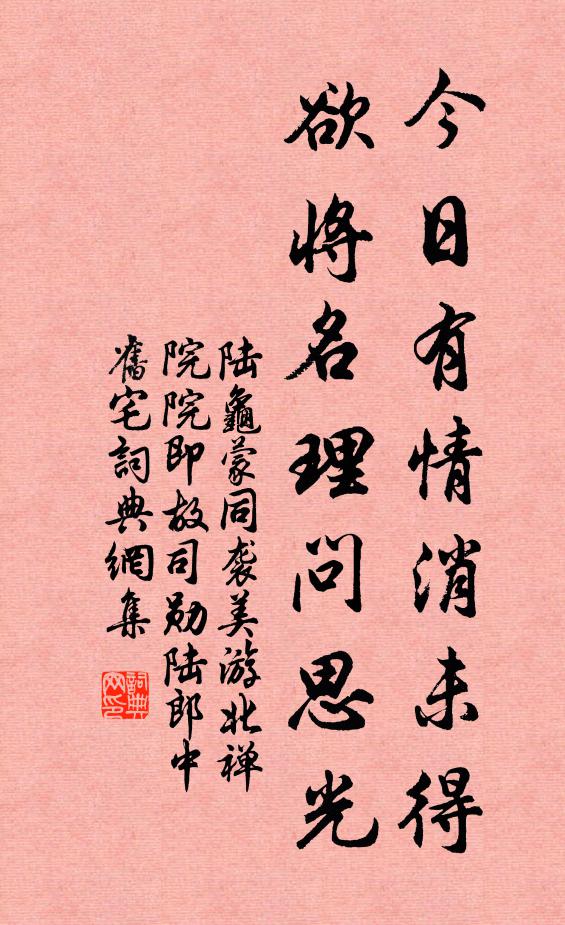 今日有情消未得
欲将名理問思光
陆龜蒙同袭美游北禅
院院即故司勛陆郎中
舊宅詞典網集
詞典网印